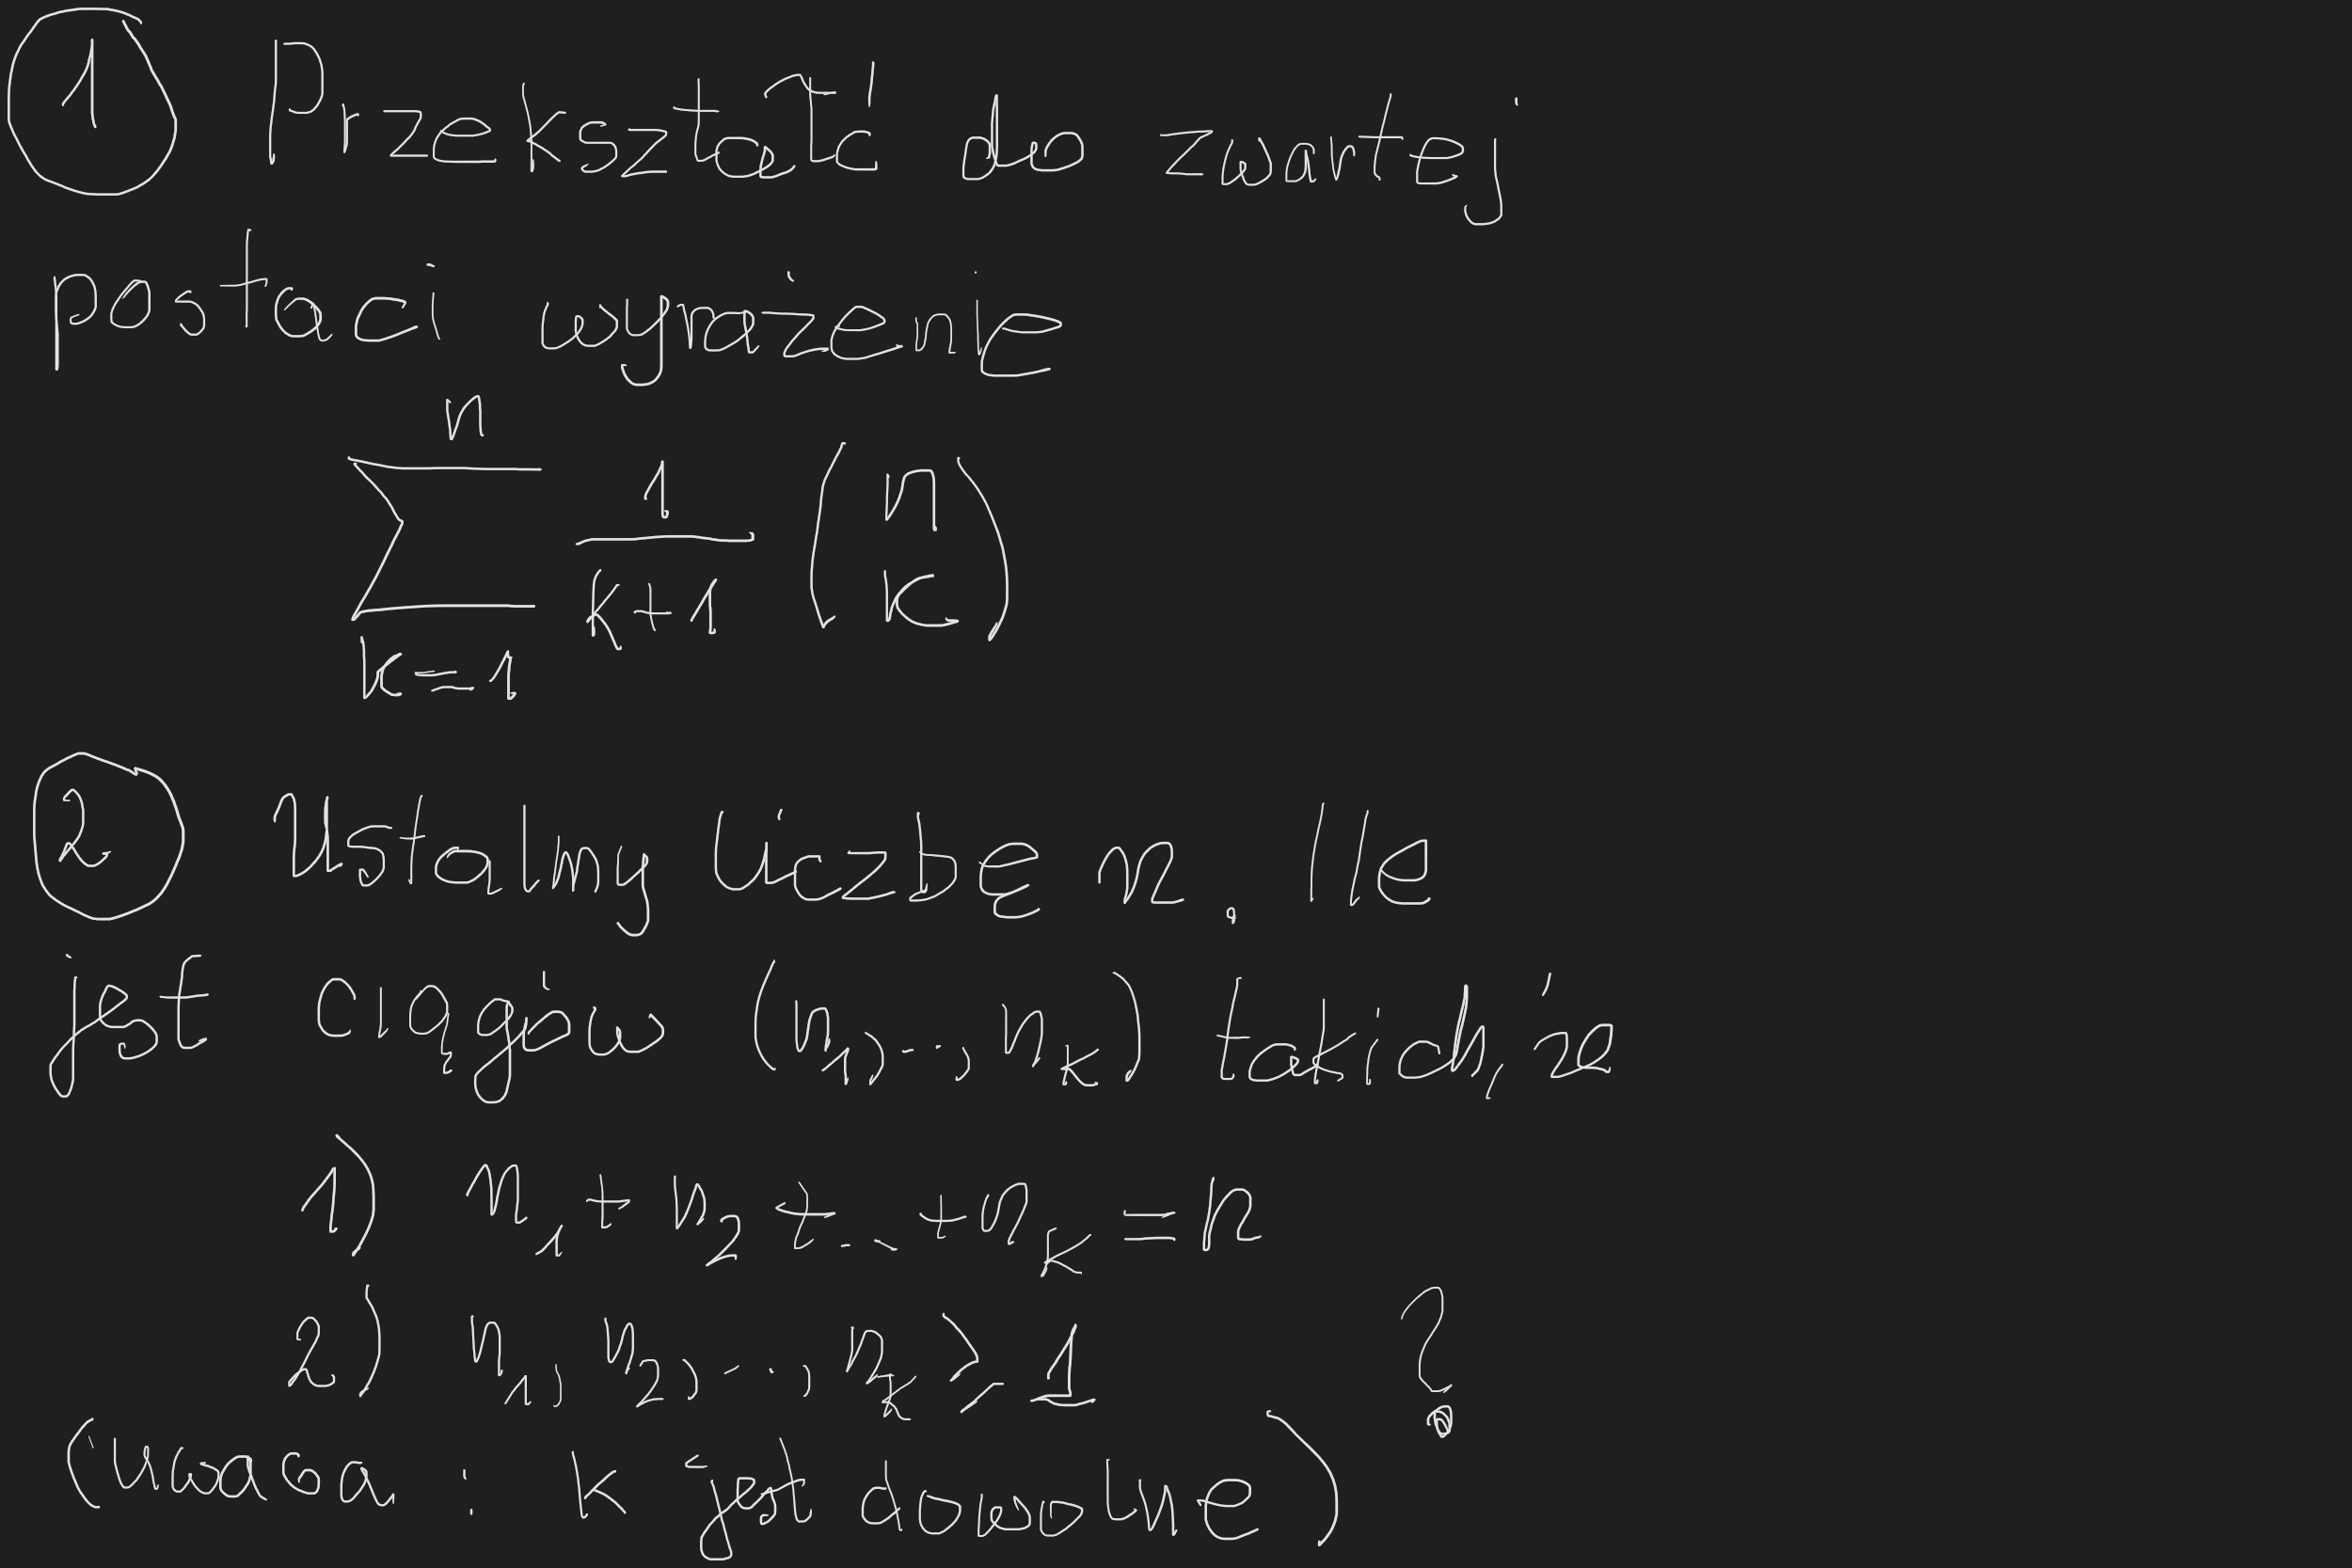 ① Przekształć do zwartej
postaci wyrażenie
n
∑ 1/(k+1) (n k)
k=1
② Ustalmy liczbę n. Ile
jest ciągów (n₁,..,nₖ) takich, że
1) n₁+n₂+...+nₖ=n
2) n₁,n₂,...,nₖ ⩾ 1 ?
(uwaga : k jest dowolne)